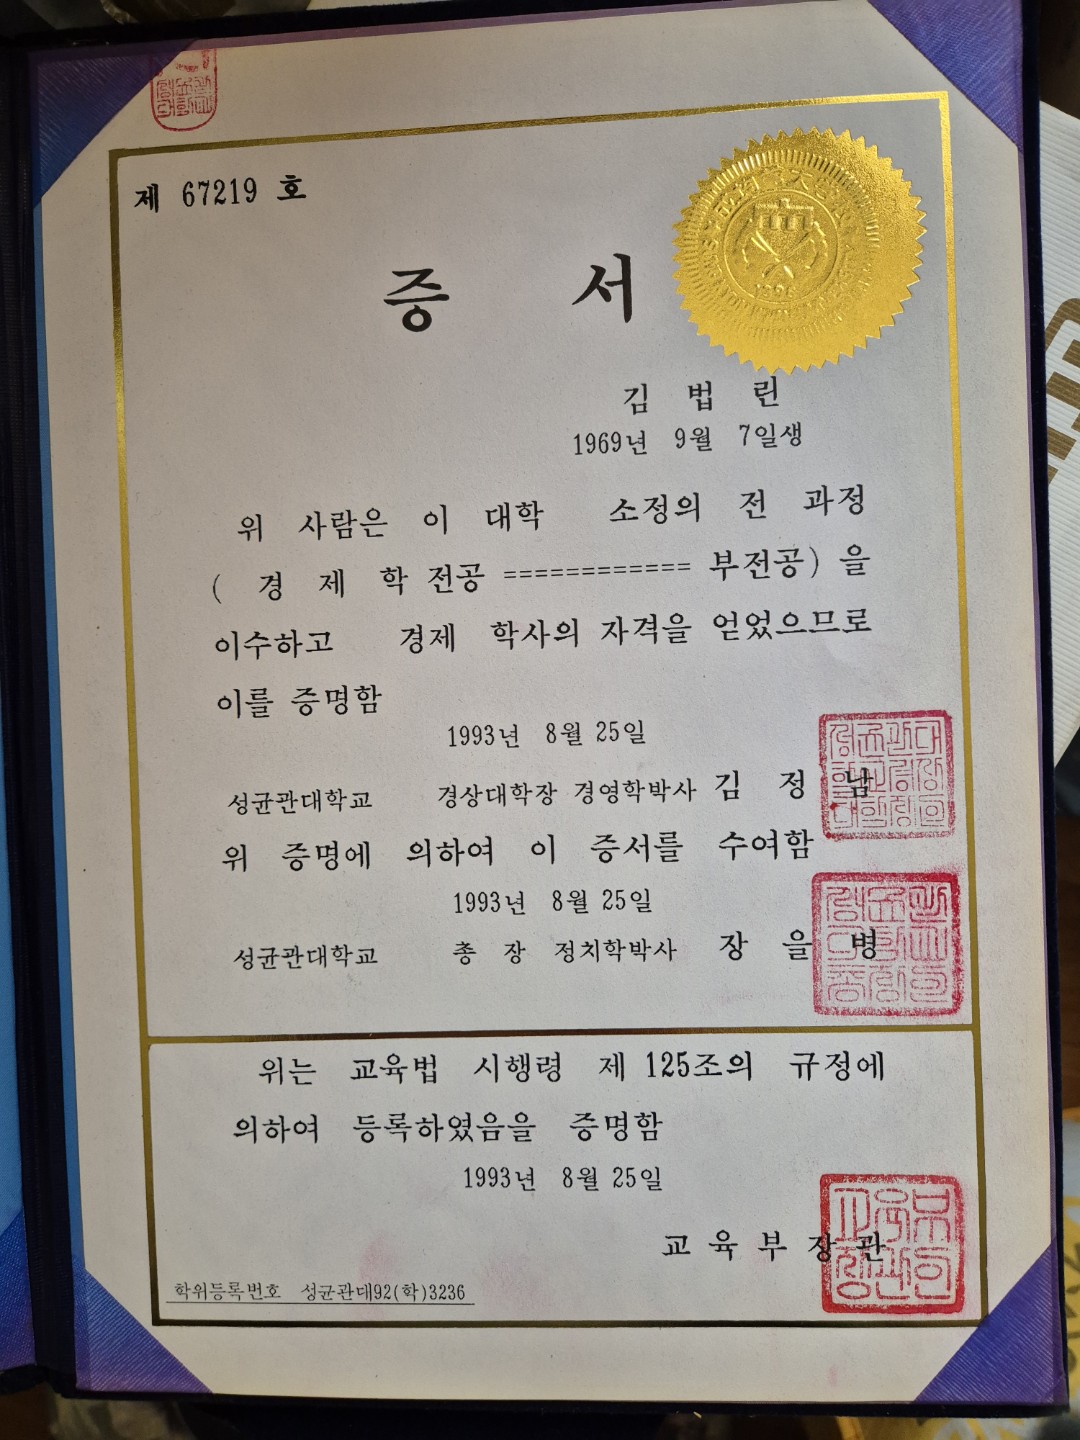 제 67219 호
증 서
김 법 린
1969년 9월 7일생
위 사람은 이 대학 소정의 전 과정
( 경 제 학 전공 ============ 부전공) 을
이수하고 경제 학사의 자격을 얻었으므로
이를 증명함
1993년 8월 25일
성균관대학교 경상대학장 경영학박사 김 정 남
위 증명에 의하여 이 증서를 수여함
1993년 8월 25일
성균관대학교 총 장 정치학박사 장 을 병
위는 교육법 시행령 제 125조의 규정에
의하여 등록하였음을 증명함
1993년 8월 25일
교 육 부 장 관
학위등록번호 성균관대92(학)3236